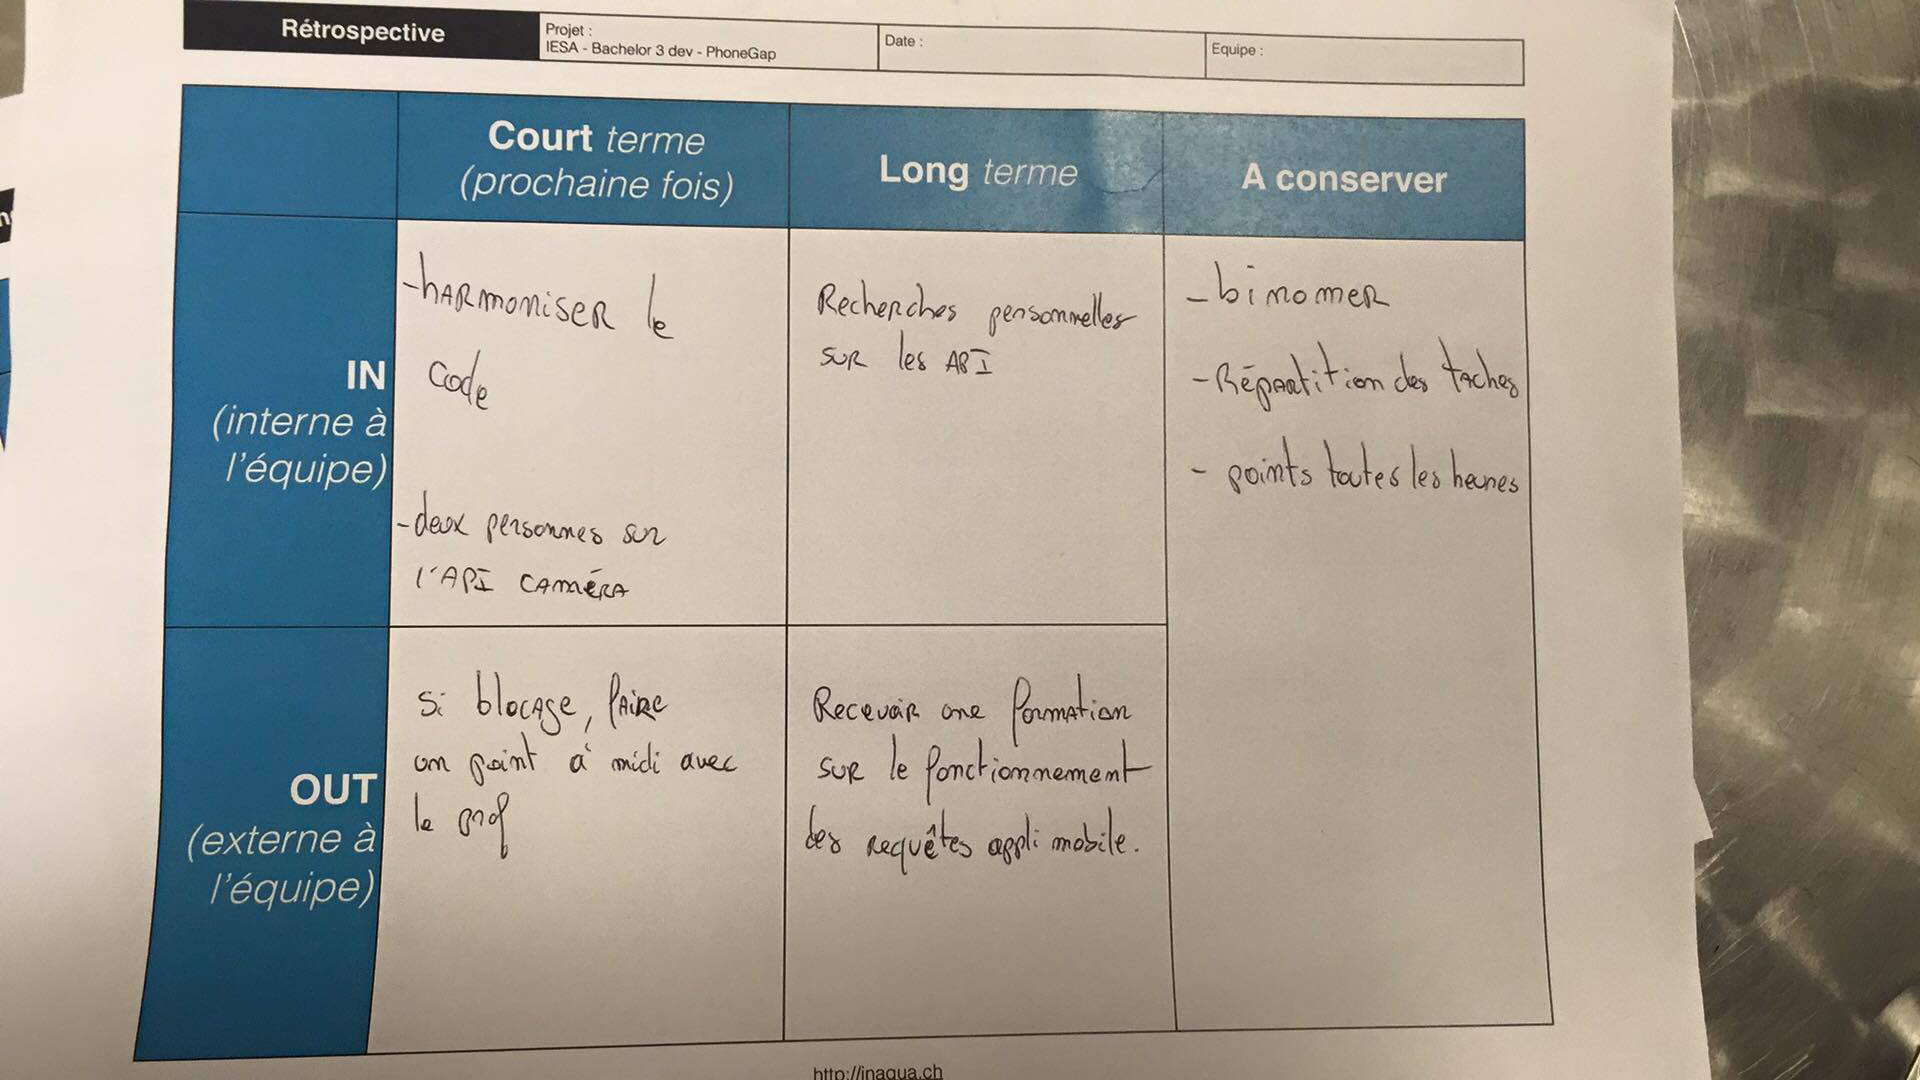 Rétrospective
Projet :
IESA - Bachelor 3 dev - PhoneGap
Date :
Equipe :
Court terme
(prochaine fois)
Long terme
A conserver
IN
(interne à
l'équipe)
-harmoniser le
code
-deux personnes sur
l'API caméra
Recherches personnelles
sur les API
- binomer
- Répartition des taches
- points toutes les heures
OUT
(externe à
l'équipe)
Si blocage, faire
un point à midi avec
le prof
Recevoir une formation
sur le fonctionnement
des requêtes appli mobile.
http://inaqua.ch